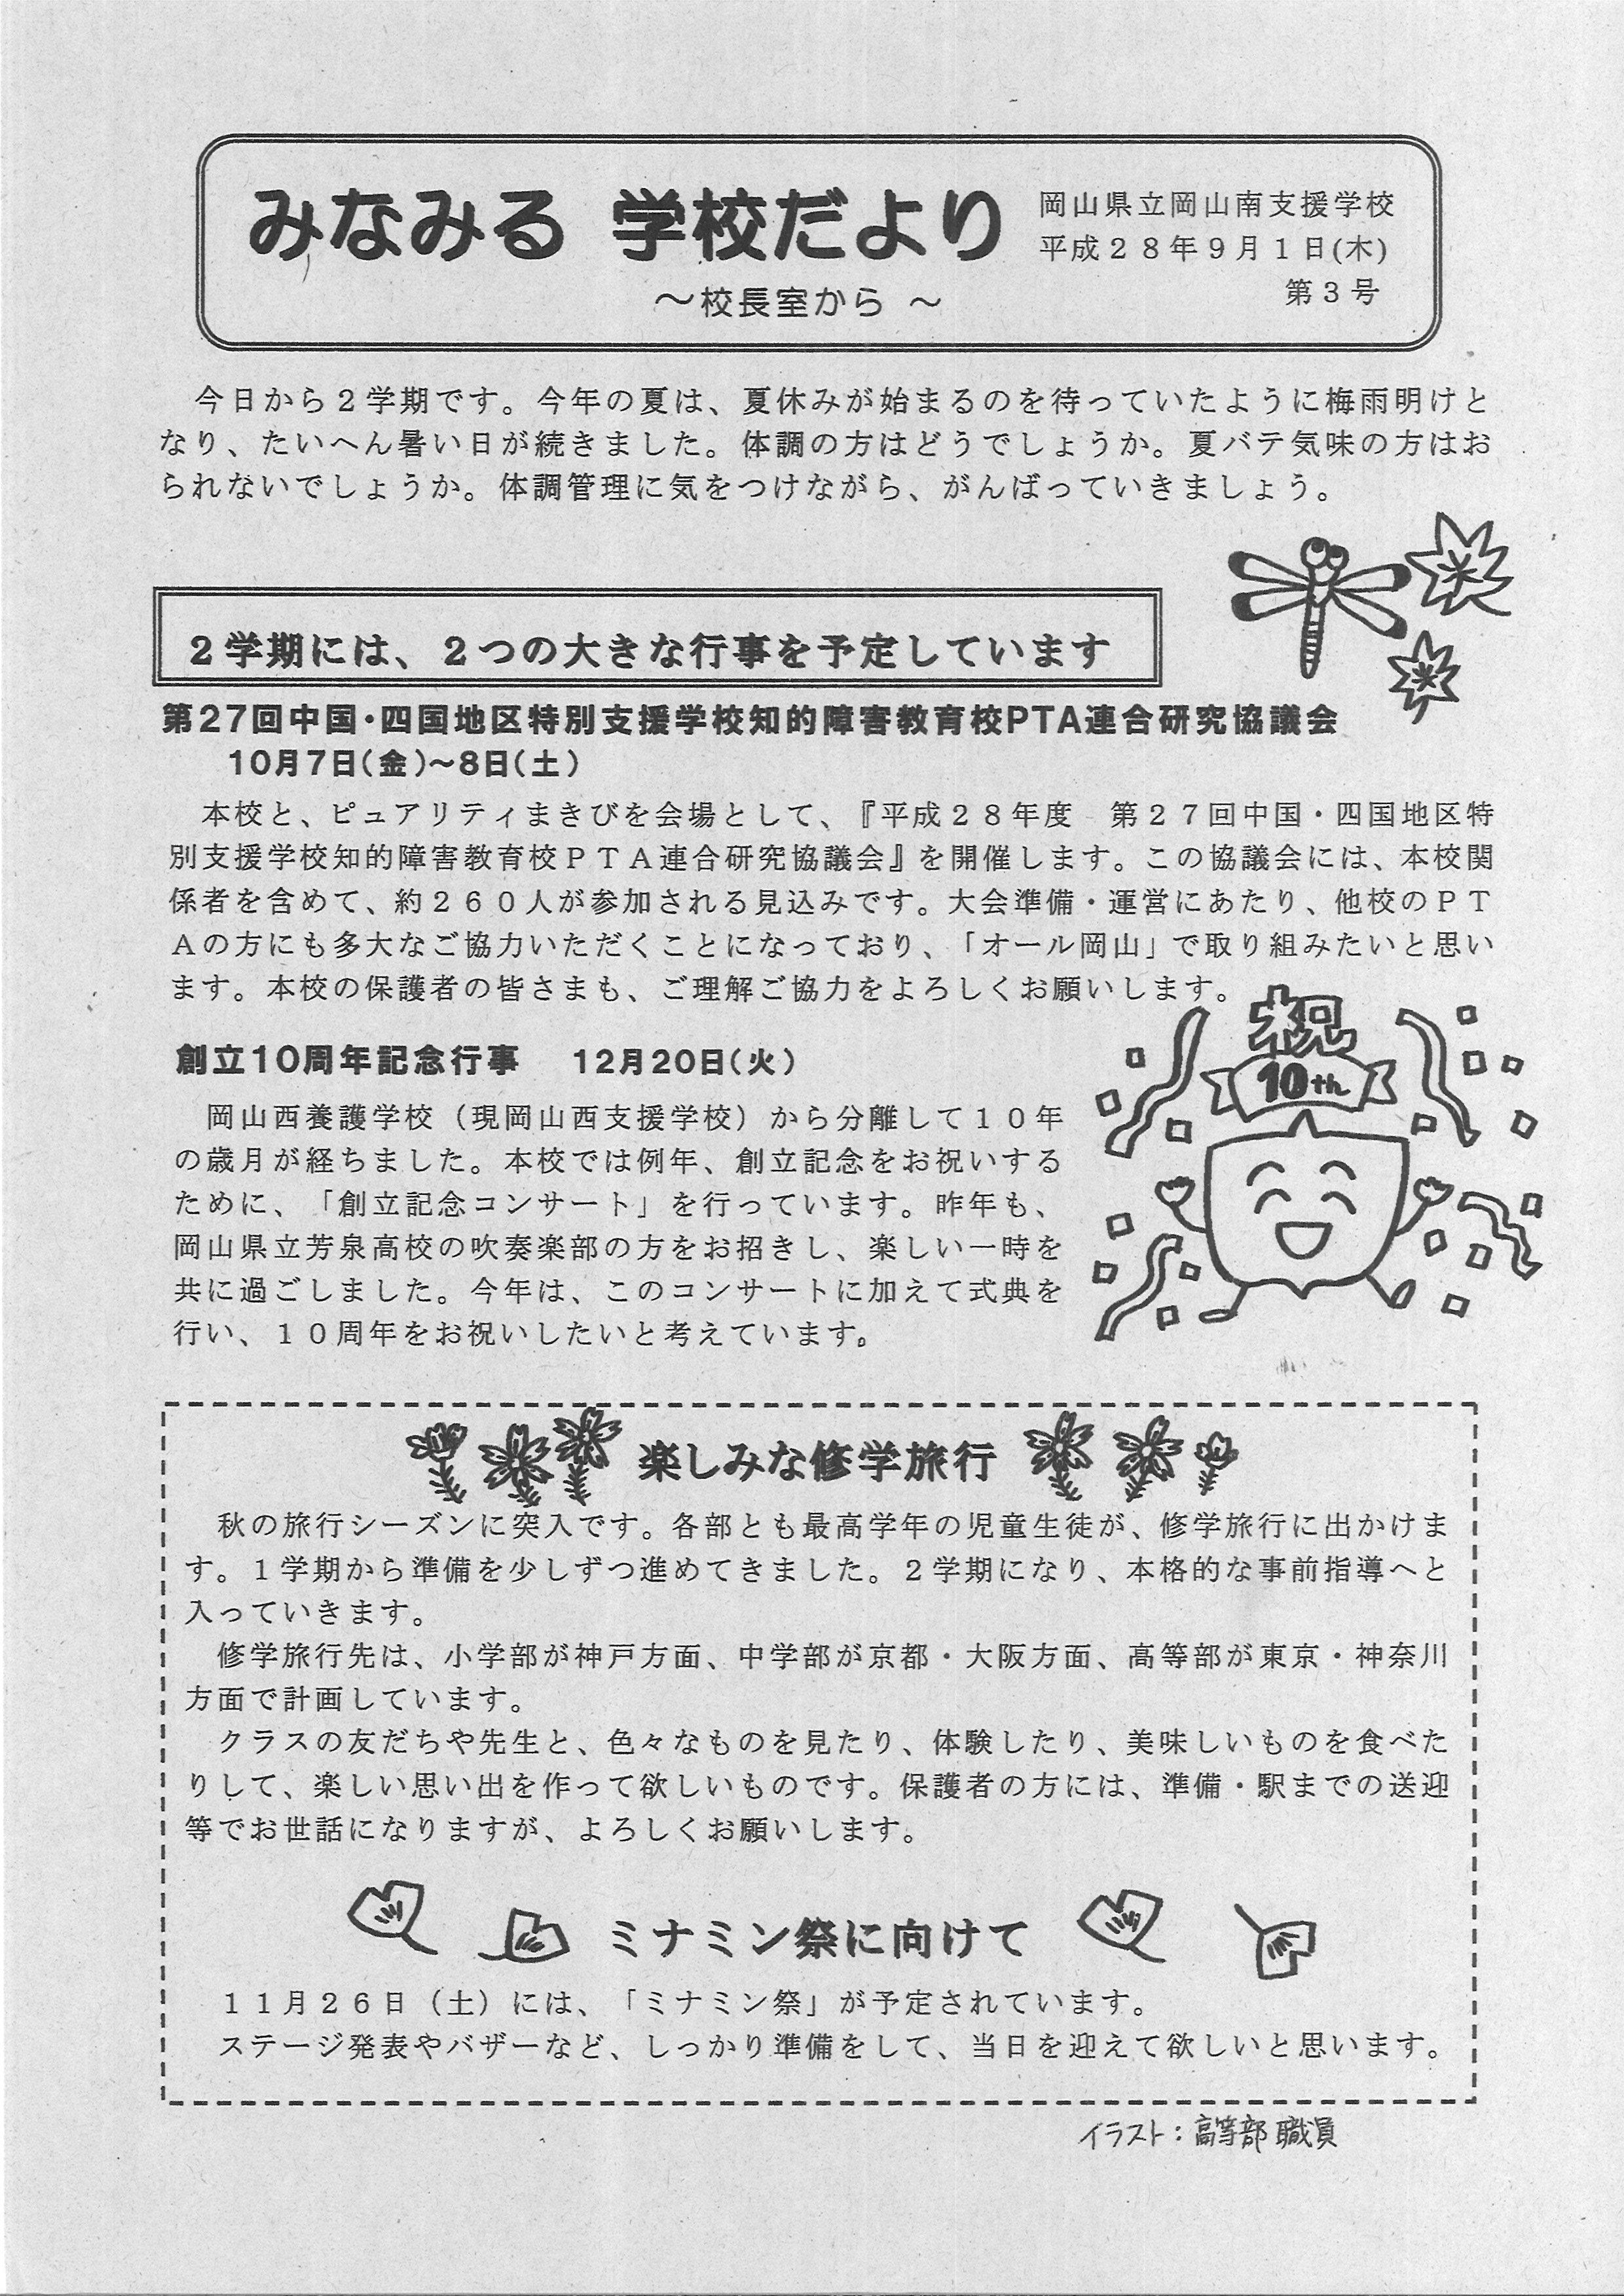 みなみる 学校だより
～校長室から ～
岡山県立岡山南支援学校
平成２８年９月１日(木)
第３号
今日から２学期です。今年の夏は、夏休みが始まるのを待っていたように梅雨明けと
なり、たいへん暑い日が続きました。体調の方はどうでしょうか。夏バテ気味の方はお
られないでしょうか。体調管理に気をつけながら、がんばっていきましょう。
２学期には、２つの大きな行事を予定しています
第27回中国・四国地区特別支援学校知的障害教育校PTA連合研究協議会
10月7日(金)～8日(土)
本校と、ピュアリティまきびを会場として、『平成２８年度　第２７回中国・四国地区特
別支援学校知的障害教育校ＰＴＡ連合研究協議会』を開催します。この協議会には、本校関
係者を含めて、約２６０人が参加される見込みです。大会準備・運営にあたり、他校のＰＴ
Ａの方にも多大なご協力いただくことになっており、「オール岡山」で取り組みたいと思い
ます。本校の保護者の皆さまも、ご理解ご協力をよろしくお願いします。
祝
10th
創立10周年記念行事　12月20日(火)
岡山西養護学校（現岡山西支援学校）から分離して１０年
の歳月が経ちました。本校では例年、創立記念をお祝いする
ために、「創立記念コンサート」を行っています。昨年も、
岡山県立芳泉高校の吹奏楽部の方をお招きし、楽しい一時を
共に過ごしました。今年は、このコンサートに加えて式典を
行い、１０周年をお祝いしたいと考えています。
楽しみな修学旅行
秋の旅行シーズンに突入です。各部とも最高学年の児童生徒が、修学旅行に出かけま
す。１学期から準備を少しずつ進めてきました。２学期になり、本格的な事前指導へと
入っていきます。
修学旅行先は、小学部が神戸方面、中学部が京都・大阪方面、高等部が東京・神奈川
方面で計画しています。
クラスの友だちや先生と、色々なものを見たり、体験したり、美味しいものを食べた
りして、楽しい思い出を作って欲しいものです。保護者の方には、準備・駅までの送迎
等でお世話になりますが、よろしくお願いします。
ミナミン祭に向けて
１１月２６日（土）には、「ミナミン祭」が予定されています。
ステージ発表やバザーなど、しっかり準備をして、当日を迎えて欲しいと思います。
イラスト：高等部職員